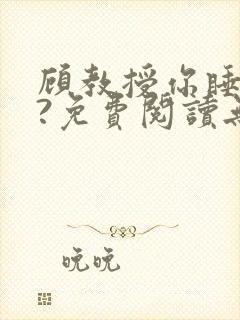 顾教授你睡
?免費閱讀
晚晚